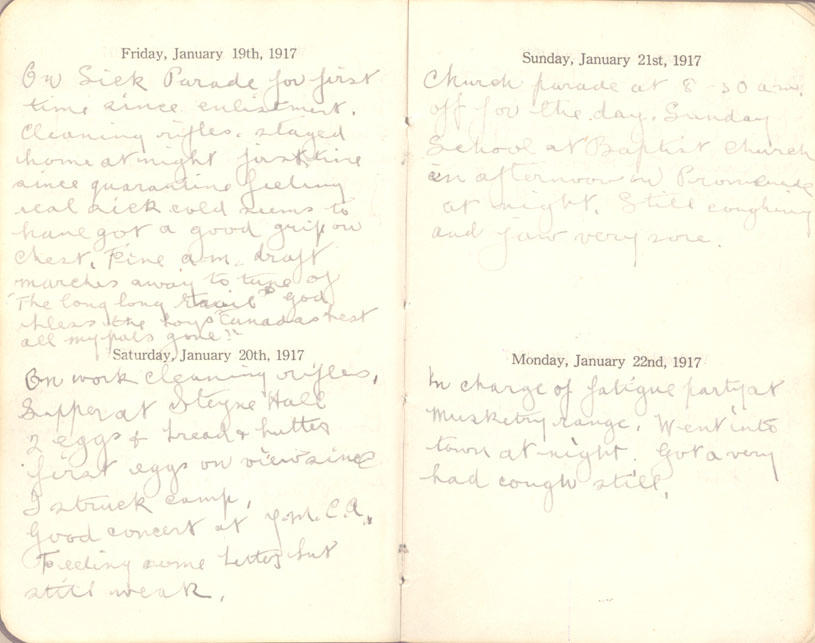 Friday, January 19th, 1917
On Sick Parade for first
time since enlistment.
Cleaning rifles. stayed
home at night first time
since quarantine feeling
real sick cold seems to
have got a good grip on
chest. Fine a.m. draft
marches away to tune of
"The long long trail" "god
bless the boys" Canadas best
all my pals gone!!
Saturday, January 20th, 1917
On work cleaning rifles,
Supper at Steyne Hall
2 eggs & bread & butter
first eggs on view since
I struck camp,
Good concert at Y.M.C.A.,
Feeling some better but
still weak.
Sunday, January 21st, 1917
Church parade at 8-30 a.m.
off for the day. Sunday
School at Baptist Church
in afternoon on Promenade
at night. Still coughing
and jaw very sore.
Monday, January 22nd, 1917
In charge of fatigue party at
musketry range. Went into
town at night. Got a very
bad cough still.